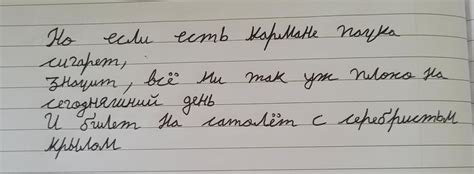 Но если есть кармане пачка
сигарет,
значит, всё ни так уж плохо на
сегодняшний день
И билет на самолёт с серебристым
крылом